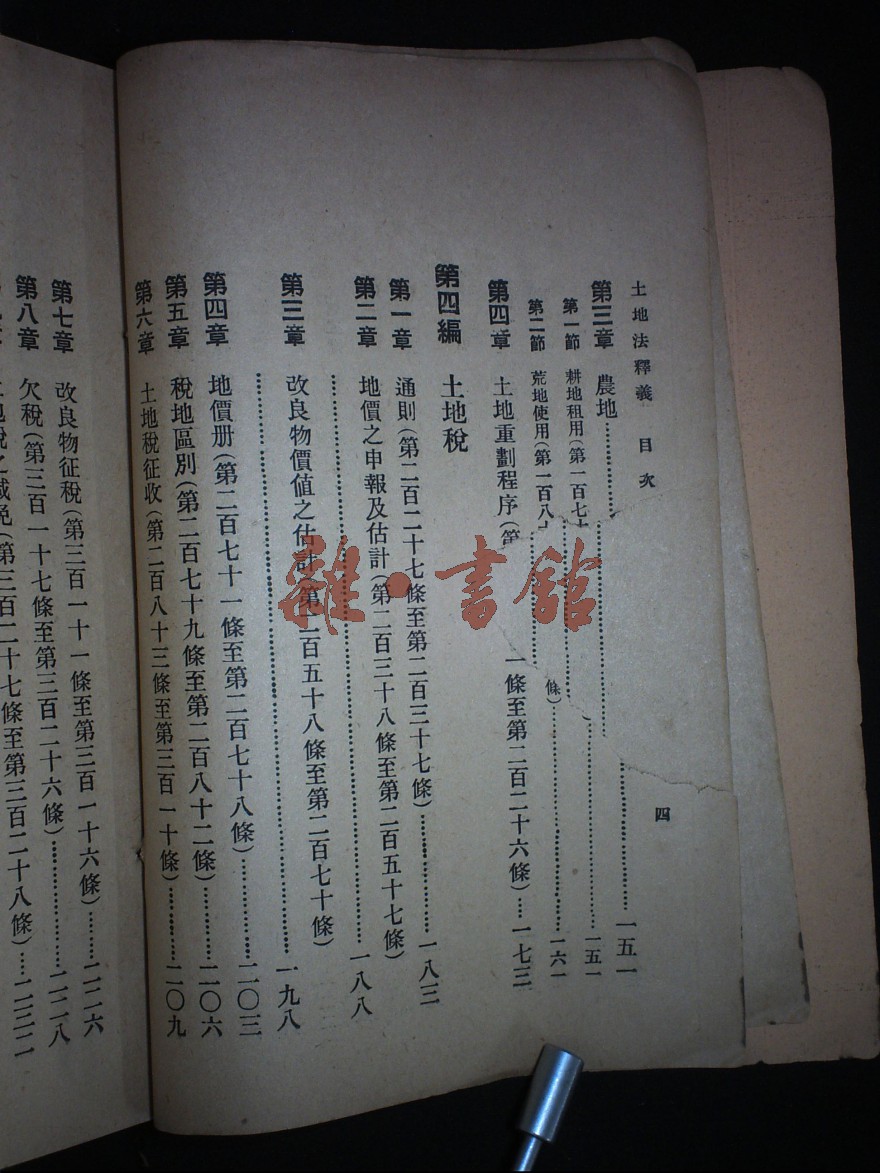 土地法釋義 目次
四
第三章 農地……一五一
第一節 耕地租用(第一百七……一五一
第二節 荒地使用(第一百八……條)……一六一
第四章 土地重劃程序(第 一條至第二百二十六條)……一七三
第四編 土地稅
第一章 通則(第二百二十七條至第二百三十七條)……一八三
第二章 地價之申報及估計(第二百三十八條至第二百五十七條)
……一八八
第三章 改良物價值之估計(第二百五十八條至第二百七十條)
……一九八
第四章 地價册(第二百七十一條至第二百七十八條)……二〇三
第五章 稅地區別(第二百七十九條至第二百八十二條)……二〇六
第六章 土地稅征收(第二百八十三條至第三百一十條)……二〇九
第七章 改良物征稅(第三百一十一條至第三百一十六條)……二二六
第八章 欠稅(第三百一十七條至第三百二十六條)……二二八
土地稅之減免(第三百二十七條至第三百二十八條)……二三二
雜·書館